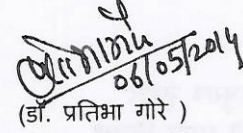 06/05/2014
(डॉ. प्रतिभा गोरे )